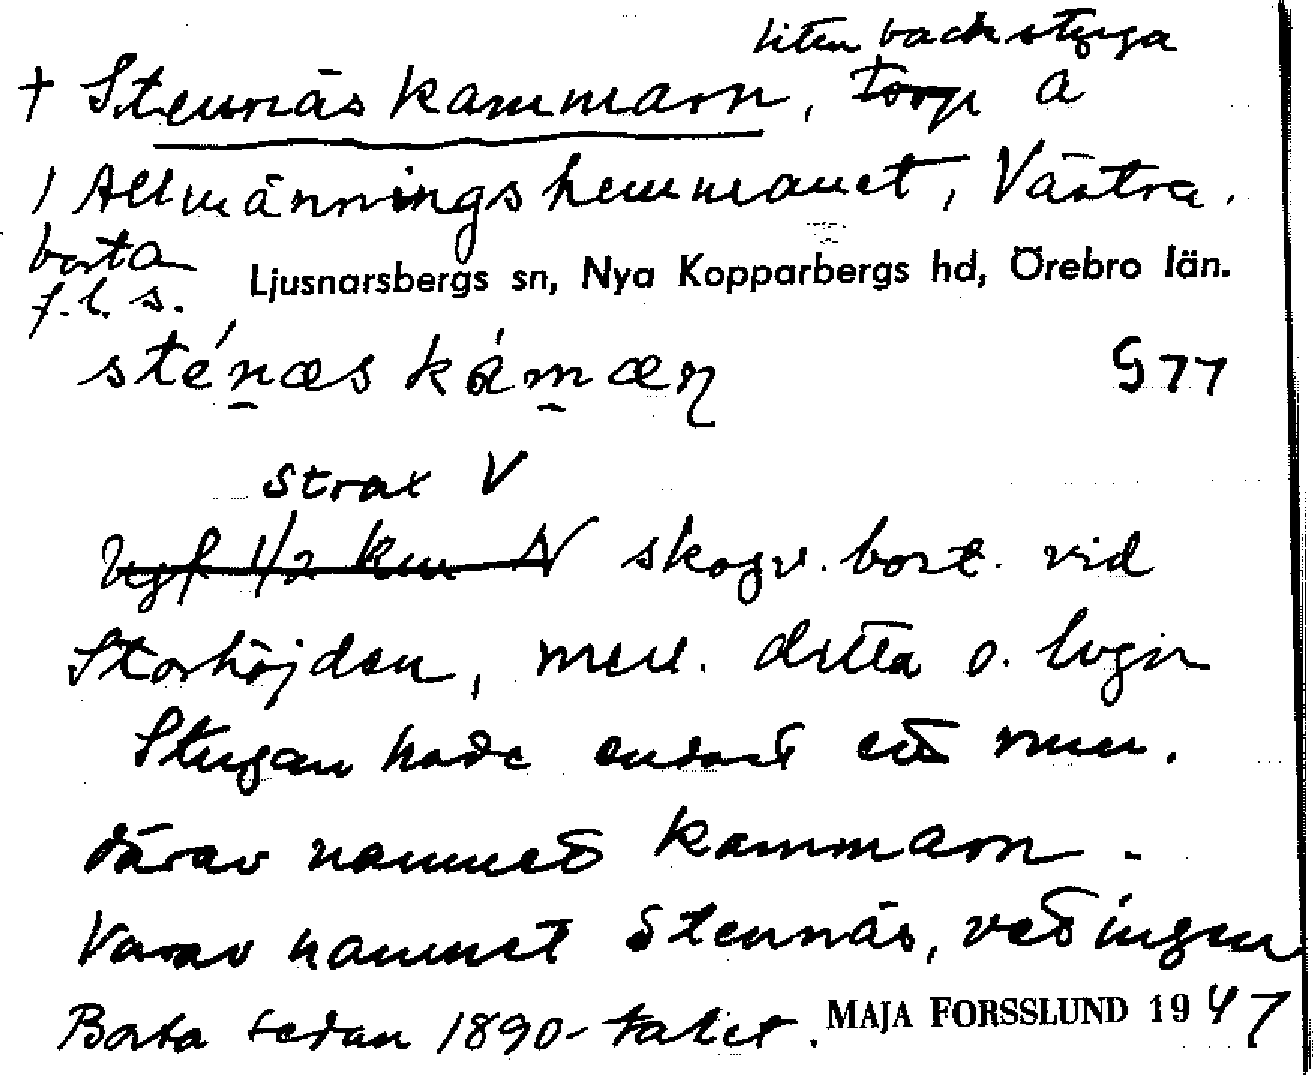 liten backstuga
† Stennäskammarn, torp å
1 Allmänningshemmanet, Västra.
borta
f.l.s.
Ljusnarsbergs sn, Nya Kopparbergs hd, Örebro län.
sténæs kámæn
G77
strax V
Ugf 1/2 km N skogv. bort. vid
Storhöjden, mell. detta o.
Stugan hade endast ett rum.
därav namnet kammarn.
Varav namnet Stennäs, vet ingen
Borta sedan 1890-talet.
MAJA FORSSLUND 1947